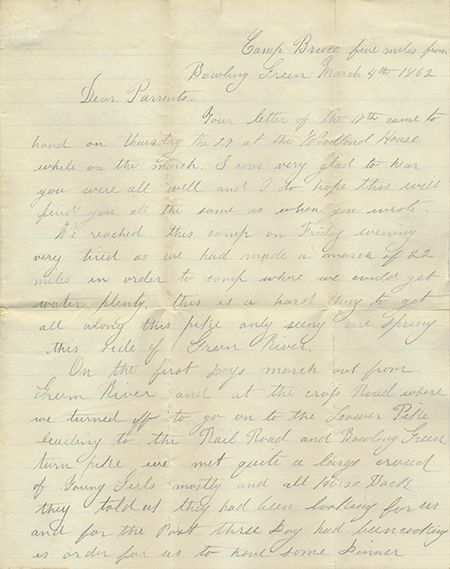 Camp Bruce five miles from
Bowling Green March 4th 1862
Dear Parrents.
Your letter of the 17th came to
hand on thursday the 27 at the Woodland House
while on the march. I was very glad to hear
you were all well and I do hope this will
find you all the same as when you wrote.
We reached this camp on Friday evening
very tired as we had made a march of 22
miles in order to camp where we could get
water plenty. this is a hard thing to get
all along this pike only seing one Spring
this side of Green River.
On the first Days march out from
Green River and at the cross Road where
we turned off to go on to the Lower Pike
leading to the Rail Road and Bowling Green
turn pike we met quite a large croud
of Young Girls mostly and all Horse Back
they told us they had been looking for us
and for the Past three Day had been cooking
in order for us to have some Dinner